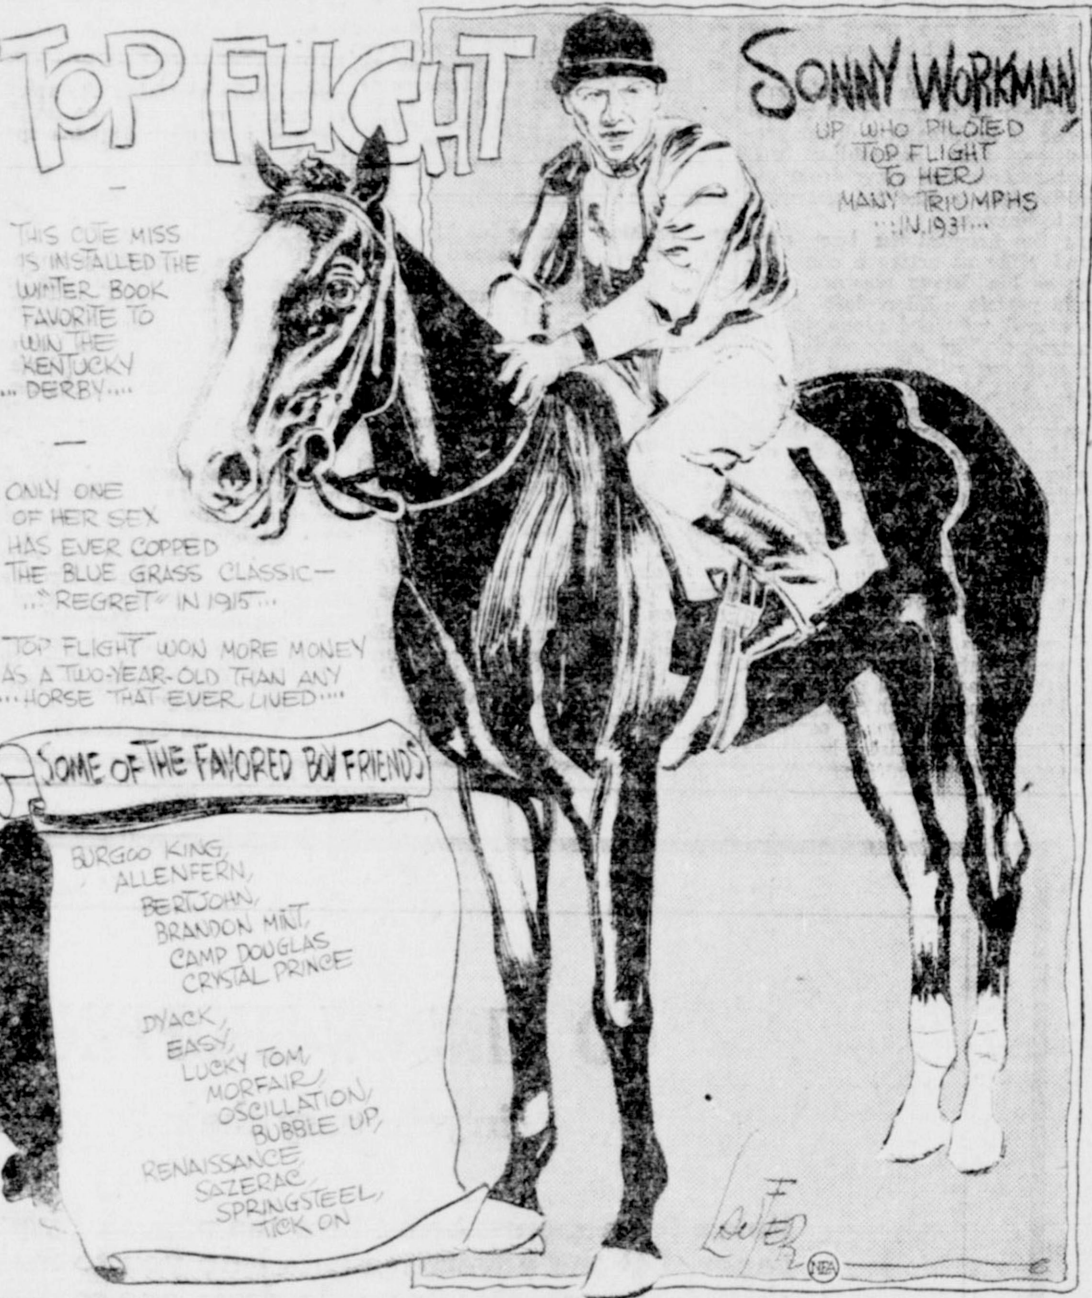 TOP FLIGHT
SONNY WORKMAN
UP WHO PILOTED
TOP FLIGHT
TO HER
MANY TRIUMPHS
...IN 1931...
THIS CUTE MISS
IS INSTALLED THE
WINTER BOOK
FAVORITE TO
WIN THE
KENTUCKY
...DERBY....
ONLY ONE
OF HER SEX
HAS EVER COPPED
THE BLUE GRASS CLASSIC—
..."REGRET" IN 1915...
TOP FLIGHT WON MORE MONEY
AS A TWO-YEAR-OLD THAN ANY
...HORSE THAT EVER LIVED....
SOME OF THE FAVORED BOY FRIENDS
BURGOO KING,
ALLENFERN,
BERTJOHN,
BRANDON MINT,
CAMP DOUGLAS
CRYSTAL PRINCE
DYACK,
EASY,
LUCKY TOM,
MORFAIR,
OSCILLATION,
BUBBLE UP,
RENAISSANCE
SAZERAC,
SPRINGSTEEL,
TICK ON
NEA